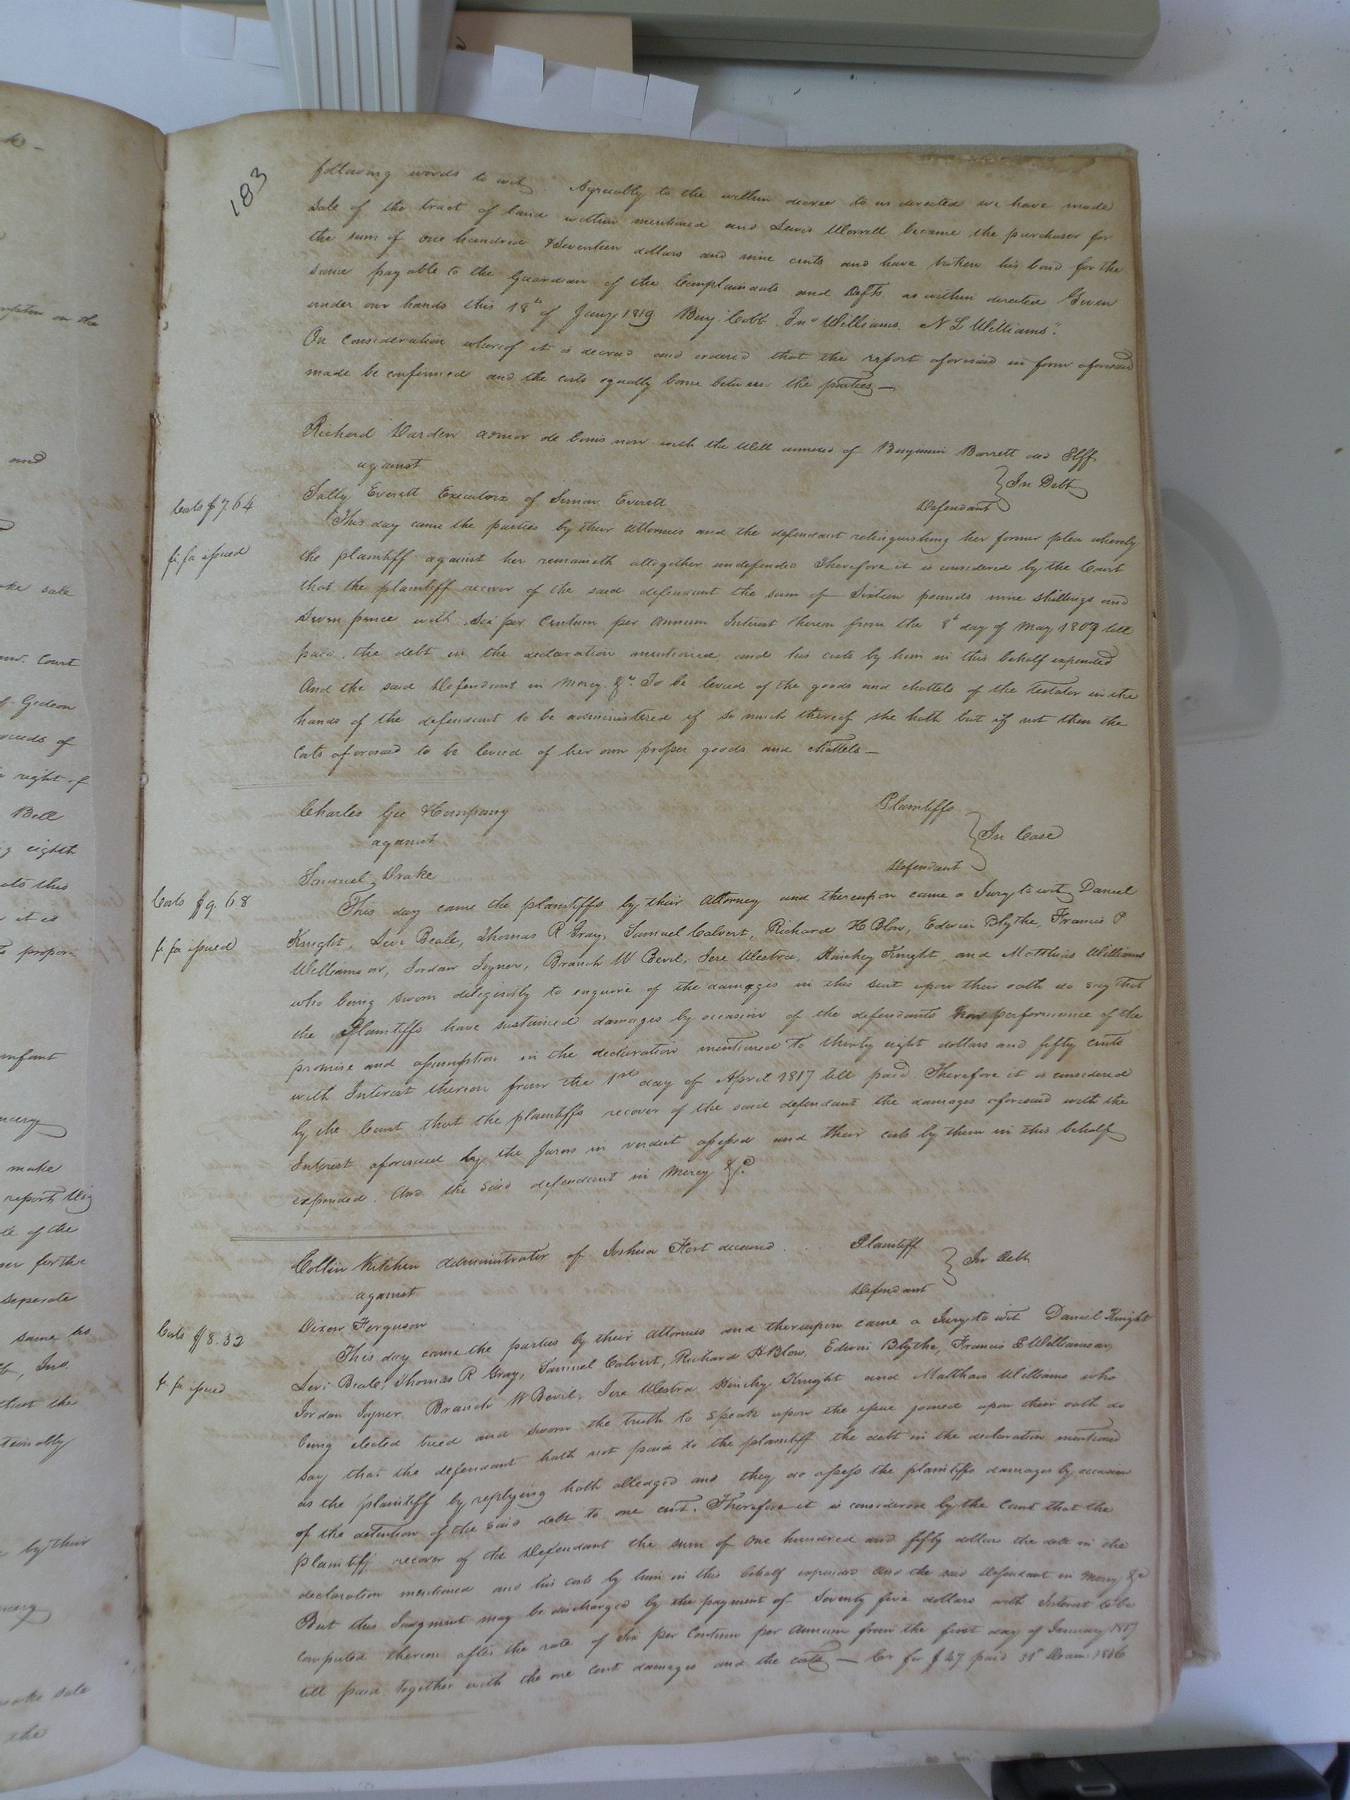 183
following words to wit, Agreeably to the within decree to us directed we have made
Sale of the tract of land within mentioned and Lewis Worrell became the purchaser for
the sum of one hundred & Seventeen dollars and nine cents and have taken his bond for the
same payable to the Guardian of the Complainants and Defts as within directed Given
under our hands this 18th of Jany 1819. Benj Cobb. Jno Williams. N L Williams".
On consideration whereof it is decreed and ordered that the report aforesaid in form aforesaid
made be confirmed and the costs equally borne between the parties —
Richard Darden admor de bonis non with the Will annexed of Benjamin Barrett decd Plff
against
In Debt
Sally Everett Executorx of Simon Everett
Defendant
Costs $7.64
This day came the parties by their Attornies and the defendant relinquishing her former plea whereby
fi. fa issued
the plaintiff against her remaineth altogether undefended Therefore it is considered by the Court
that the plaintiff recover of the said defendant the sum of Sixteen pounds nine shillings and
Seven pence with Six per Centum per Annum Interest thereon from the 8th day of May 1809 till
paid, the debt in the declaration mentioned and his costs by him in this behalf expended
And the said Defendant in Mercy &c. To be levied of the goods and chattels of the testator in the
hands of the defendant to be administered if so much thereof she hath but if not then the
Costs aforesaid to be levied of her own proper goods and Chattels —
Charles Gee & Company
Plaintiffs
against
In Case
Samuel Drake
Defendant
Costs $9.68
This day came the plaintiffs by their Attorney and thereupon came a Jury to wit, Daniel
fi. fa issued
Knight, Levi Beale, Thomas R Gray, Samuel Calvert, Richard H Blow, Edwin Blythe, Francis P
Williamson, Jordan Joyner, Branch W Bevil, Jere Westra, Hinchey Knight, and Matthias Williams
who being sworn diligently to enquire of the damages in this suit upon their oath do say that
the Plaintiffs have sustained damages by occasion of the defendants Non performance of the
promise and assumption in the declaration mentioned to thirty eight dollars and fifty cents
with Interest thereon from the 1st day of April 1817 till paid Therefore it is considered
by the Court that the plaintiffs recover of the said defendant the damages aforesaid with the
Interest aforesaid by the Jurors in verdict assessed and their costs by them in this behalf
expended. And the said defendant in Mercy &c.
Collin Kitchen administrator of Joshua Fort deceased
Plaintiff
In Debt
against
Defendant
Dixon Ferguson
Costs $8.32
This day came the parties by their Attornies and thereupon came a Jury to wit Daniel Knight
Levi Beale, Thomas R Gray, Samuel Calvert, Richard H Blow, Edwin Blythe, Francis E Williamson,
fi. fa issued
Jordan Joyner, Branch W Bevil, Jere Westra, Hinchey Knight and Matthias Williams who
being elected tried and sworn the truth to speak upon the issue joined upon their oath do
say that the defendant hath not paid to the plaintiff the debt in the declaration mentioned
as the plaintiff by replying hath alledged and they do assess the plaintiffs damages by occasion
of the detention of the said debt to one cent. Therefore it is considered by the Court that the
plaintiff recover of the Defendant the sum of One hundred and fifty dollars the debt in the
declaration mentioned and his costs by him in this behalf expended and the said defendant in Mercy &c
But this Judgment may be discharged by the payment of Seventy five dollars with Interest to be
computed thereon after the rate of Six per Centum per Annum from the first day of January 1817
till paid together with the one cent damages and the costs — Cr for $47 paid Decem. 1816